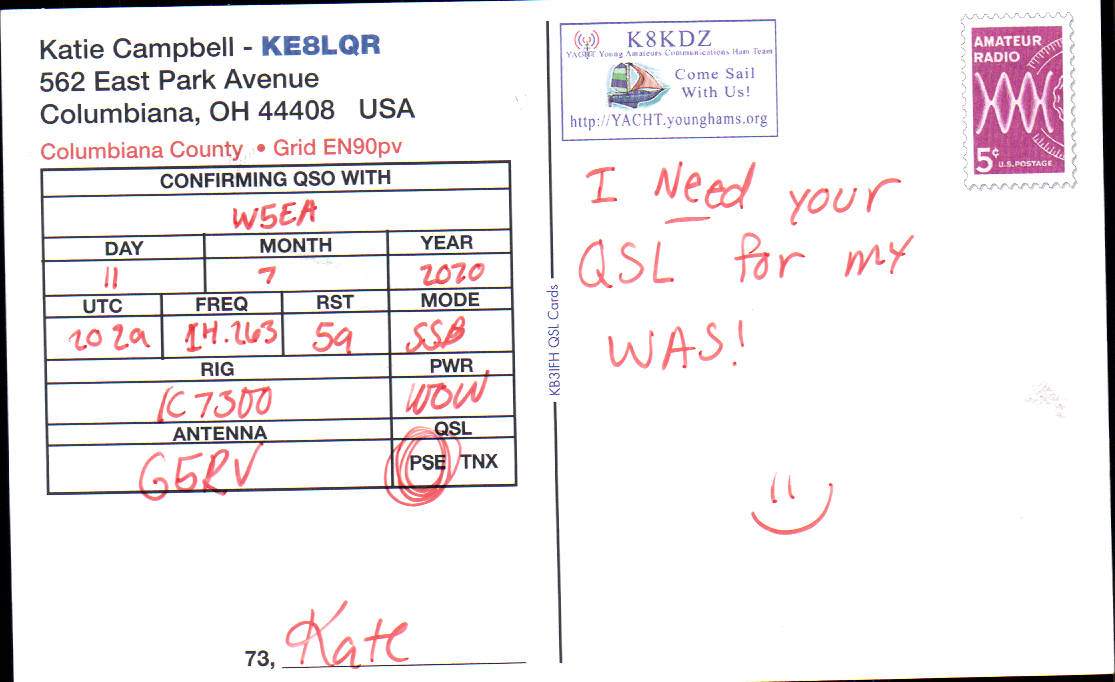 Katie Campbell - KE8LQR
562 East Park Avenue
Columbiana, OH 44408 USA
Columbiana County • Grid EN90pv
CONFIRMING QSO WITH
W5EA
DAY MONTH YEAR
11 7 2020
UTC FREQ RST MODE
2029 14.263 59 SSB
RIG PWR
IC7300 100W
ANTENNA QSL
G5RV PSE TNX
73, Kate
KB3IFH QSL Cards
K8KDZ
YACHT Young Amateurs Communications Ham Team
Come Sail
With Us!
http://YACHT.younghams.org
AMATEUR
RADIO
5¢ U.S. POSTAGE
I Need your
QSL for my
WAS!